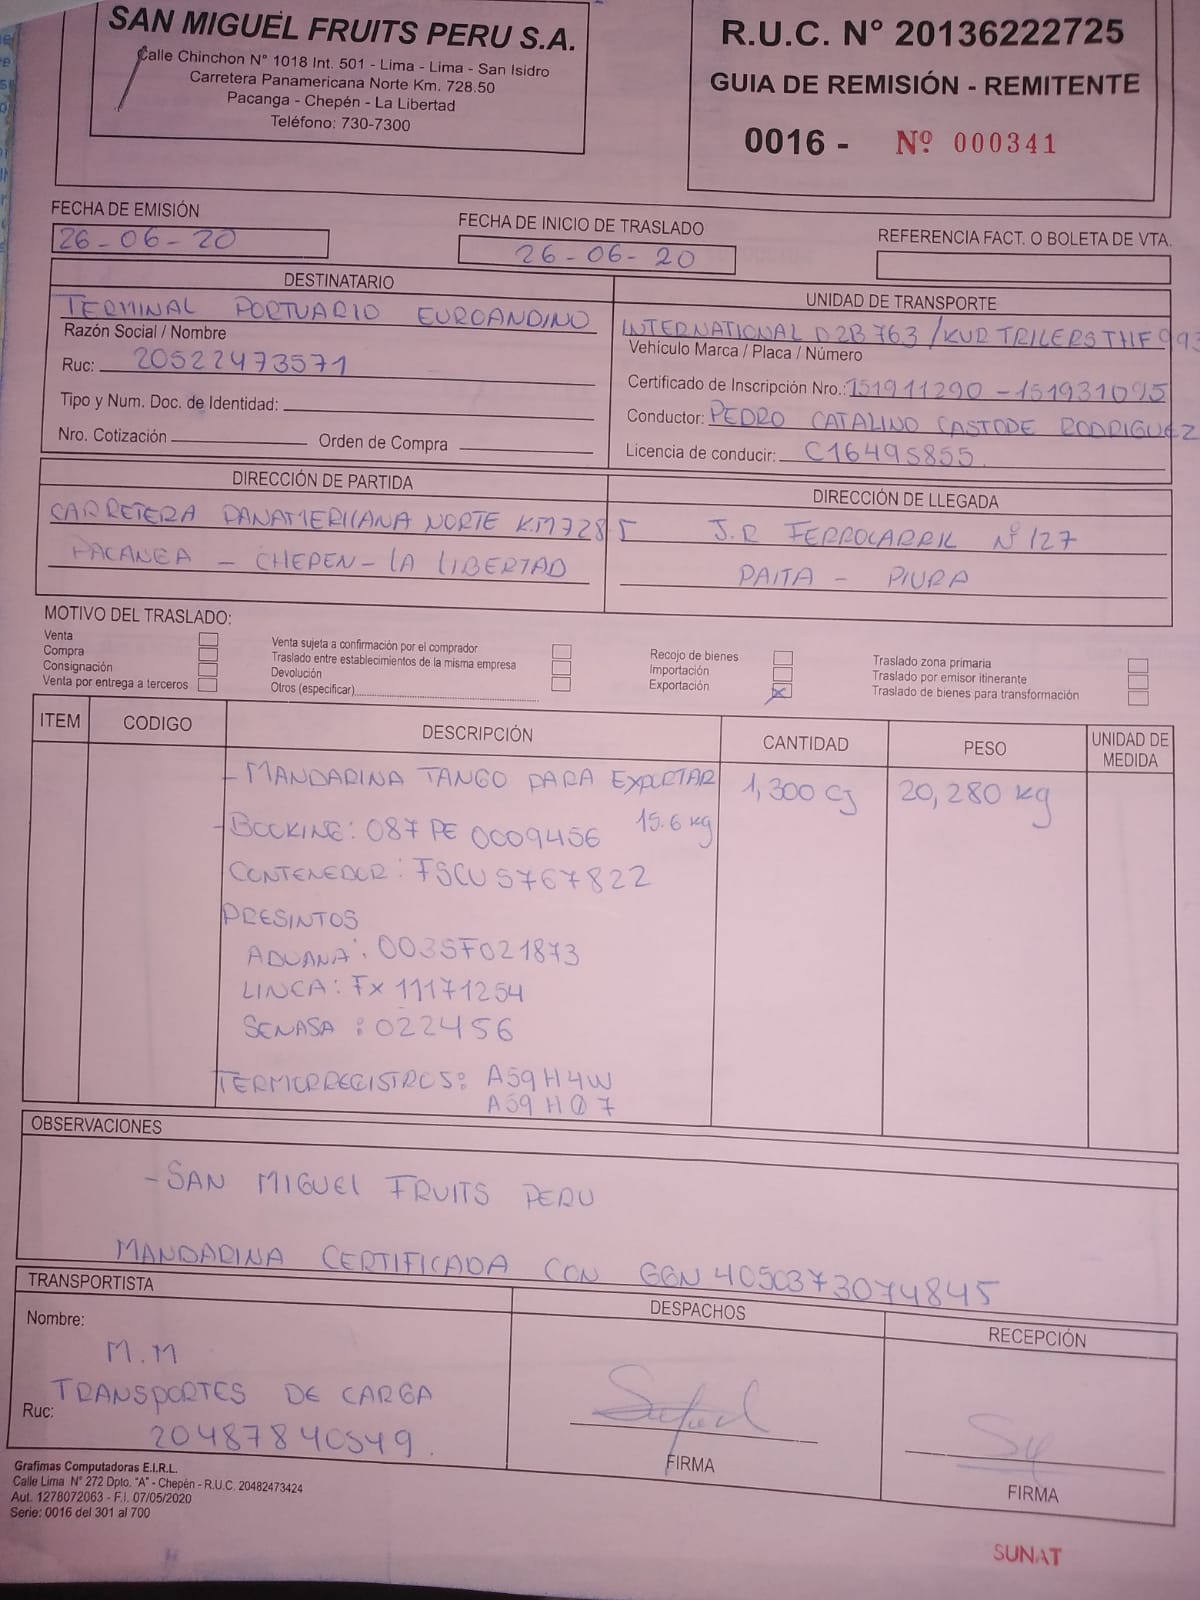 SAN MIGUEL FRUITS PERU S.A.
Calle Chinchon N° 1018 Int. 501 - Lima - Lima - San Isidro
Carretera Panamericana Norte Km. 728.50
Pacanga - Chepén - La Libertad
Teléfono: 730-7300
R.U.C. N° 20136222725
GUIA DE REMISIÓN - REMITENTE
0016 - Nº 000341
FECHA DE EMISIÓN
26-06-20
FECHA DE INICIO DE TRASLADO
26-06-20
REFERENCIA FACT. O BOLETA DE VTA.
DESTINATARIO
TERMINAL PORTUARIO EUROANDINO
Razón Social / Nombre
Ruc: 20522473571
Tipo y Num. Doc. de Identidad:
Nro. Cotización Orden de Compra
UNIDAD DE TRANSPORTE
INTERNATIONAL D2B 763 / KUR TRILERS THF 993
Vehículo Marca / Placa / Número
Certificado de Inscripción Nro.: 151911290 - 151931095
Conductor: PEDRO CATALINO CASTODE RODRIGUEZ
Licencia de conducir: C16495855
DIRECCIÓN DE PARTIDA
CARRETERA PANAMERICANA NORTE KM 728.5
PACANGA - CHEPEN - LA LIBERTAD
DIRECCIÓN DE LLEGADA
J.R FERROCARRIL Nº 127
PAITA - PIURA
MOTIVO DEL TRASLADO:
Venta
Compra
Consignación
Venta por entrega a terceros
Venta sujeta a confirmación por el comprador
Traslado entre establecimientos de la misma empresa
Devolución
Otros (especificar)
Recojo de bienes
Importación
Exportación X
Traslado zona primaria
Traslado por emisor itinerante
Traslado de bienes para transformación
ITEM CODIGO DESCRIPCIÓN CANTIDAD PESO UNIDAD DE MEDIDA
- MANDARINA TANGO PARA EXPORTAR 1,300 CJ 20,280 kg
15.6 kg
- BOOKING: 087 PE 0009456
CONTENEDOR: FSCU 5767822
PRESINTOS
ADUANA: 0035F021873
LINEA: FX 11171254
SENASA: 022456
TERMORREGISTROS: A59H4W
A59H07
OBSERVACIONES
- SAN MIGUEL FRUITS PERU
MANDARINA CERTIFICADA CON GGN 4050373074845
TRANSPORTISTA
Nombre:
M.M
TRANSPORTES DE CARGA
Ruc: 20487840549.
DESPACHOS
FIRMA
RECEPCIÓN
FIRMA
Grafimas Computadoras E.I.R.L.
Calle Lima N° 272 Dpto. "A" - Chepén - R.U.C. 20482473424
Aut. 1278072063 - F.I. 07/05/2020
Serie: 0016 del 301 al 700
SUNAT